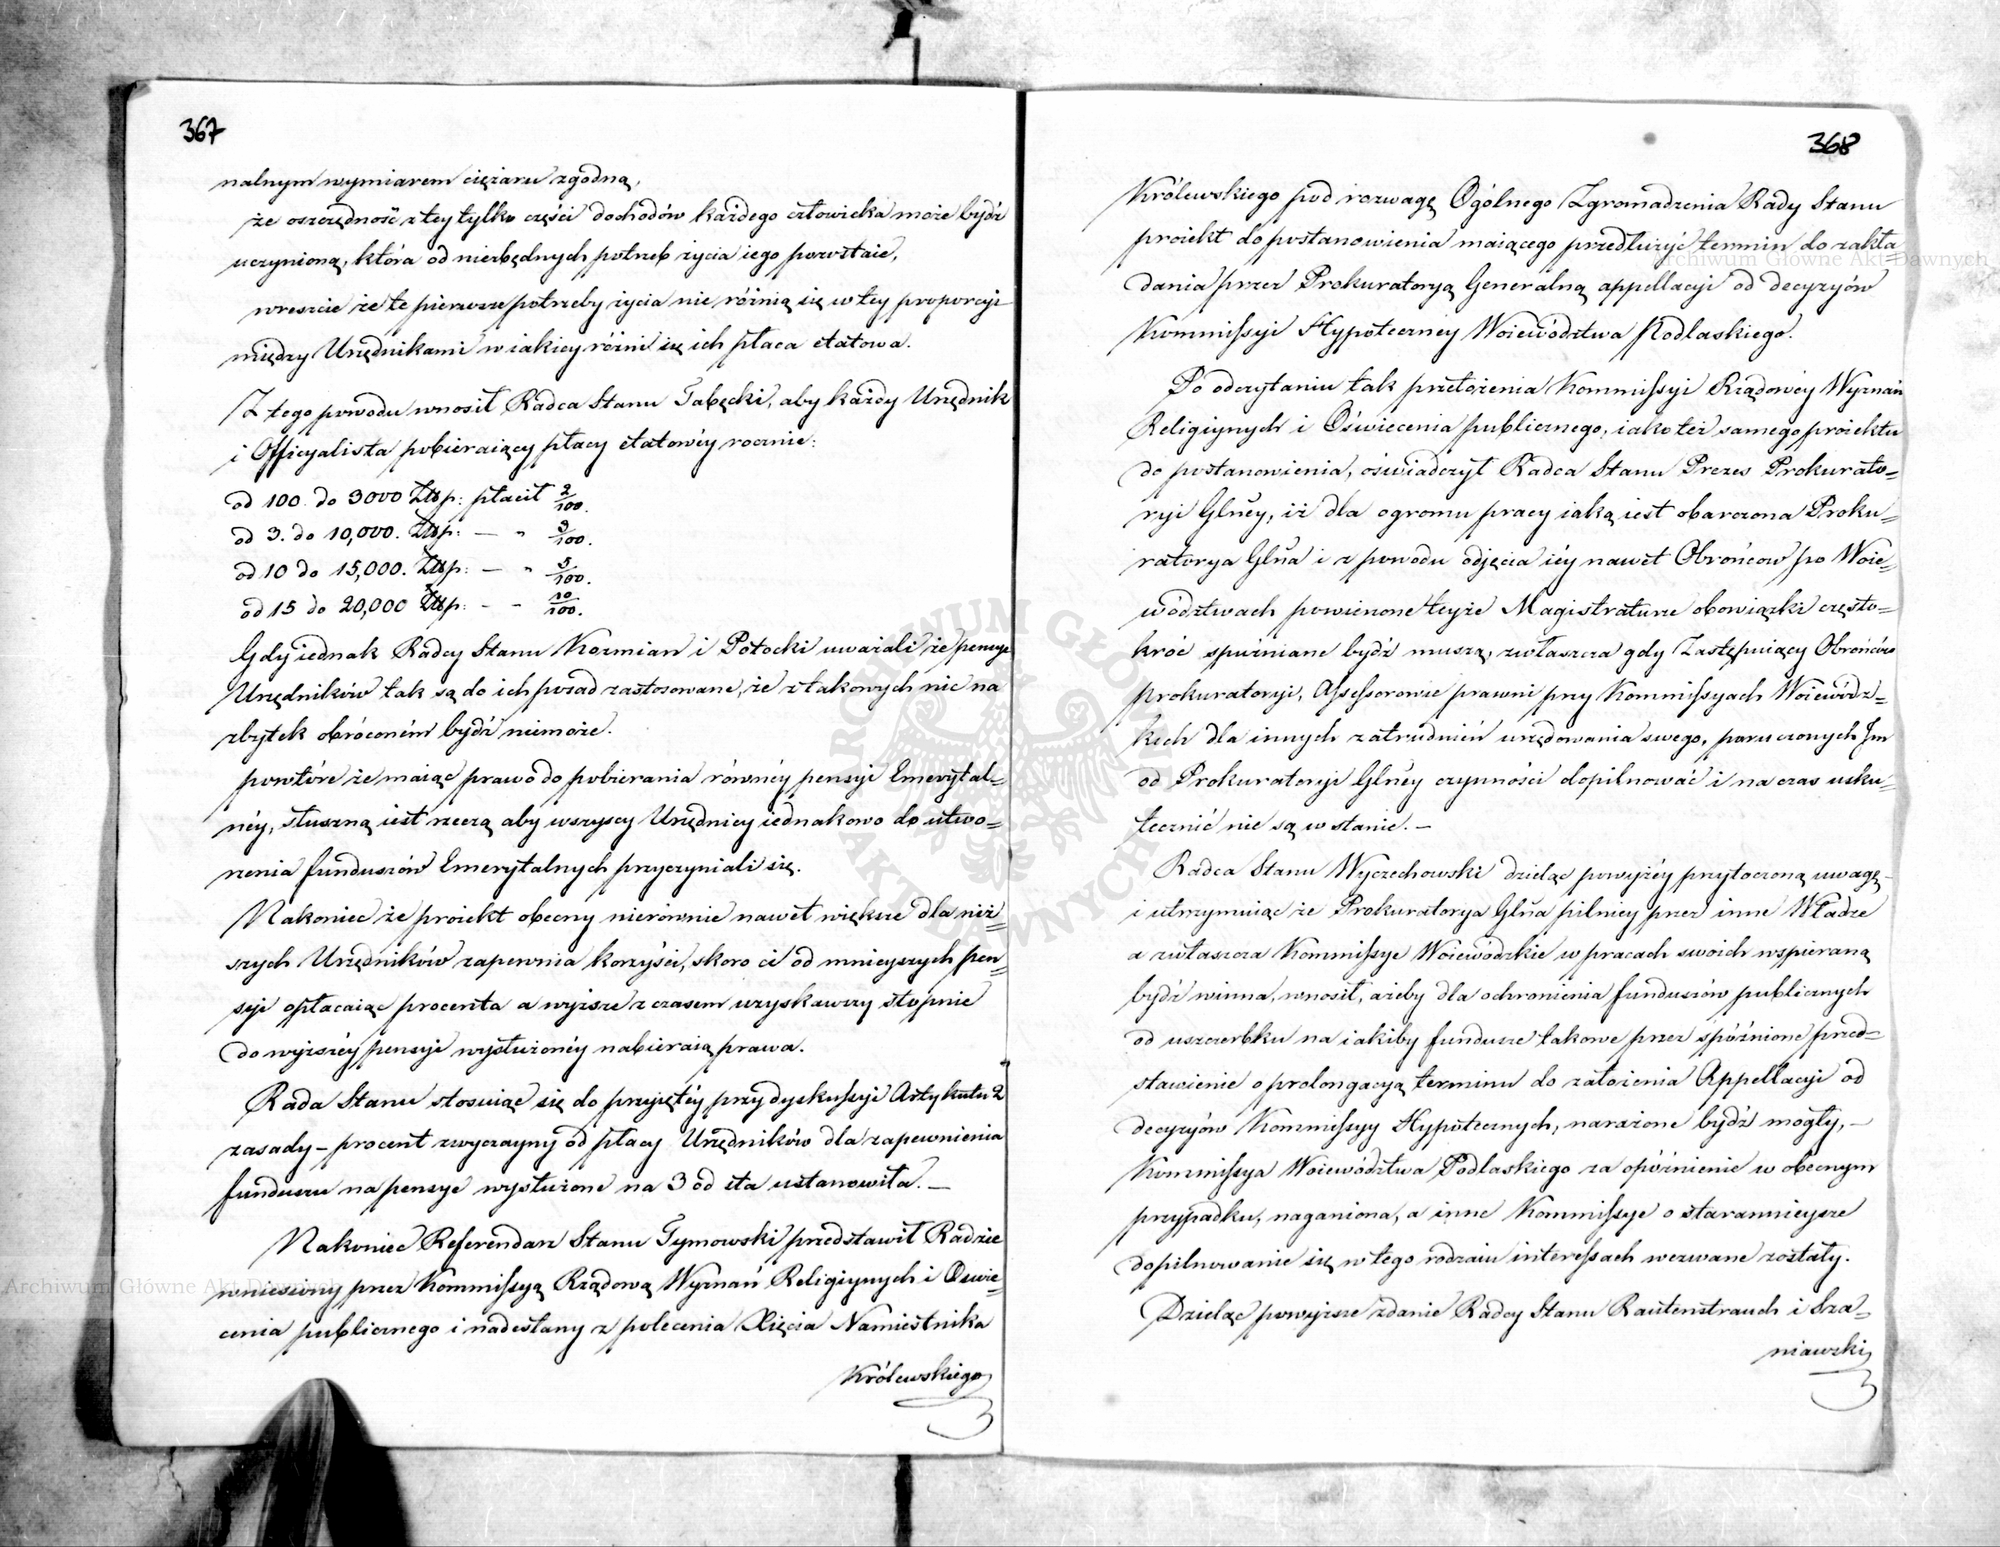 367
nalnym wymiarem ciężaru zgodną,
że oszczędność z tey tylko części dochodów każdego człowieka może bydź
uczynioną, która od niezbędnych potrzeb życia iego pozostaie,
wreszcie że te pierwsze potrzeby życia nie różnią się w tey proporcyi
między Urzędnikami w iakiey różni się ich płaca etatowa.
Z tego powodu wnosił Radca Stanu Gabęcki, aby każdy Urzędnik
i Officyalista pobieraiący płacy etatowéy rocznie:
od 100. do 3000 Złłp: płacił 2/100.
od 3. do 10,000. Złłp: — " 3/100.
od 10 do 15,000. Złłp: — " 5/100.
od 15 do 20,000 Złłp: - - 10/100.
Gdy iednak Radcy Stanu Kozmian i Potocki uważali że pensye
Urzędników tak są do ich posad zastosowane, że z takowych nic na
zbytek obróconém bydź niemoże.
powtóre że maiąc prawo do pobierania równéy pensyi Emerytal=
néy, słuszną iest rzeczą aby wszyscy Urzędnicy iednakowo do utwo=
rzenia funduszów Emerytalnych przyczyniali się.
Nakoniec że proiekt obecny nierównie nawet większe dla niż=
szych Urzędników zapewnia korzyści, skoro ci od mnieyszych pen=
syi opłacaiąc procenta a wyższe z czasem uzyskawszy stopnie
do wyższéy pensyi wysłużonéy nabieraią prawa.
Rada Stanu stosuiąc się do przyiętéy przy dyskussyi Artykułu 2
zasady – procent zwyczayny od płacy Urzędników dla zapewnienia
funduszu na pensye wysłużone na 3 od sta ustanowiła. —
Nakoniec Referendarz Stanu Tymowski przedstawił Radzie
wniesiony przez Kommissyą Rządową Wyznań Religiynych i Oswie=
cenia publicznego i nadesłany z polecenia Xięcia Namiestnika
Królewskiego
368
Królewskiego pod rozwagę Ogólnego Zgromadzenia Rady Stanu
proiekt do postanowienia maiącego przedłużyć termin do zakła
dania przez Prokuratoryą Generalną appellacyi od decyzyów
Kommissyi Hypoteczney Województwa Podlaskiego.
Po odczytaniu tak przełożenia Kommissyi Rządowéy Wyznań
Religiynych i Oświecenia publicznego, iako też samego proiektu
do postanowienia, oświadczył Radca Stanu Prezes Prokurato=
ryi Glnéy, iż dla ogromu pracy iaką iest obarczona Proku=
ratorya Glna i z powodu odjęcia iéy nawet Obrońcow po Woie=
wództwach powierzone teyże Magistraturze obowiązki często=
króć spuźniane bydź muszą, zwłaszcza gdy Zastępuiący Obrońców
prokuratoryi, Assessorowie prawni przy Kommissyach Woiewódz=
kich dla innych zatrudnień urzędowania swego, poruczonych Im
od Prokuratoryi Glnéy czynności dopilnować i na czas usku=
tecznić nie są w stanie. —
Radca Stanu Wyczechowski dzieląc powyżéy przytoczoną uwagę
i utrzymuiąc że Prokuratorya Glna pilniey przez inne Władze
a zwłaszcza Kommissye Woiewódzkie w pracach swoich wspieraną
bydź winna, wnosił, ażeby dla ochronienia funduszów publicznych
od uszczerbku na iakiby fundusze takowe przez spóźnione przed=
stawienie o prolongacyą terminu do założenia Appellacyi od
decyzyów Kommissyy Hypotecznych, narażone bydź mogły, —
Kommissya Woiewództwa Podlaskiego za opóźnienie w obecnym
przypadku, naganiona, a inne Kommissye o starannieysze
dopilnowanie się w tego rodzaiu interessach wezwane zostały.
Dzieląc powyższe zdanie Radcy Stanu Rautenstrauch i Sza=
niawski
Archiwum Główne Akt Dawnych
Archiwum Główne Akt Dawnych
ARCHIWUM GŁÓWNE AKT DAWNYCH